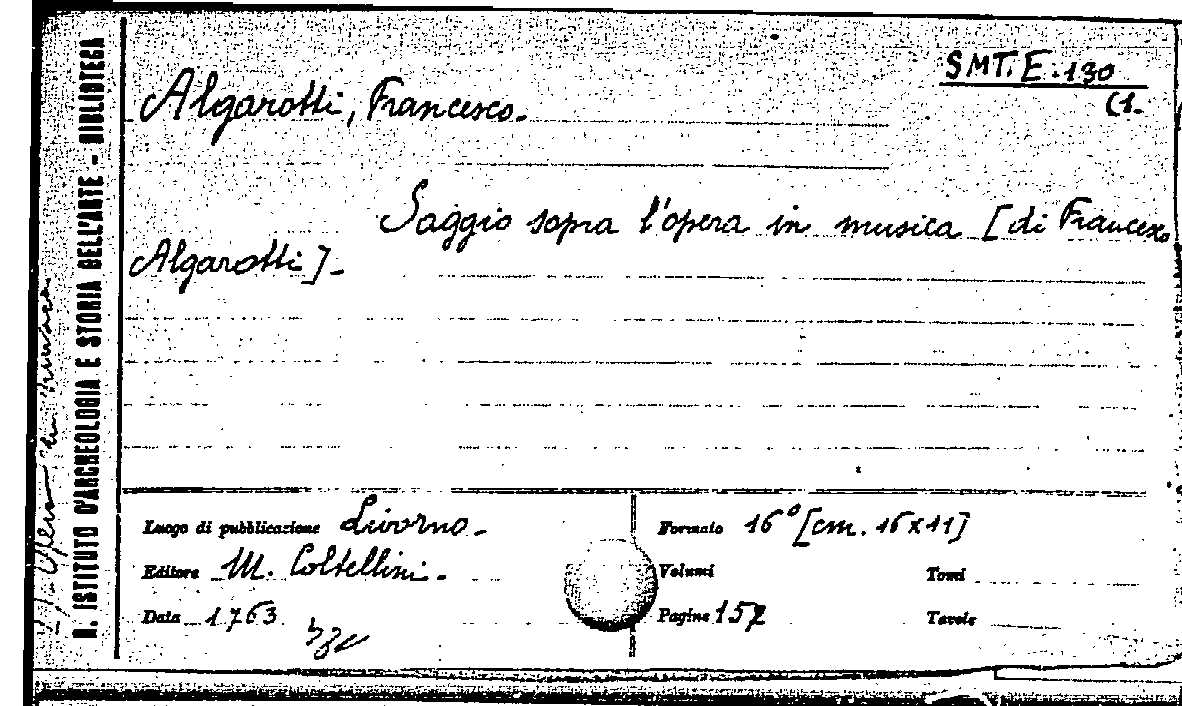 SMT. E. 130
(1.
Algarotti, Francesco.
Saggio sopra l'opera in musica [di Francesco
Algarotti].
R. ISTITUTO D'ARCHEOLOGIA E STORIA DELL'ARTE - BIBLIOTECA
Luogo di pubblicazione Livorno.
Editore M. Coltellini.
Data 1763
Formato 16° [cm. 16x11]
Volumi
Tomi
Pagine 157
Tavole